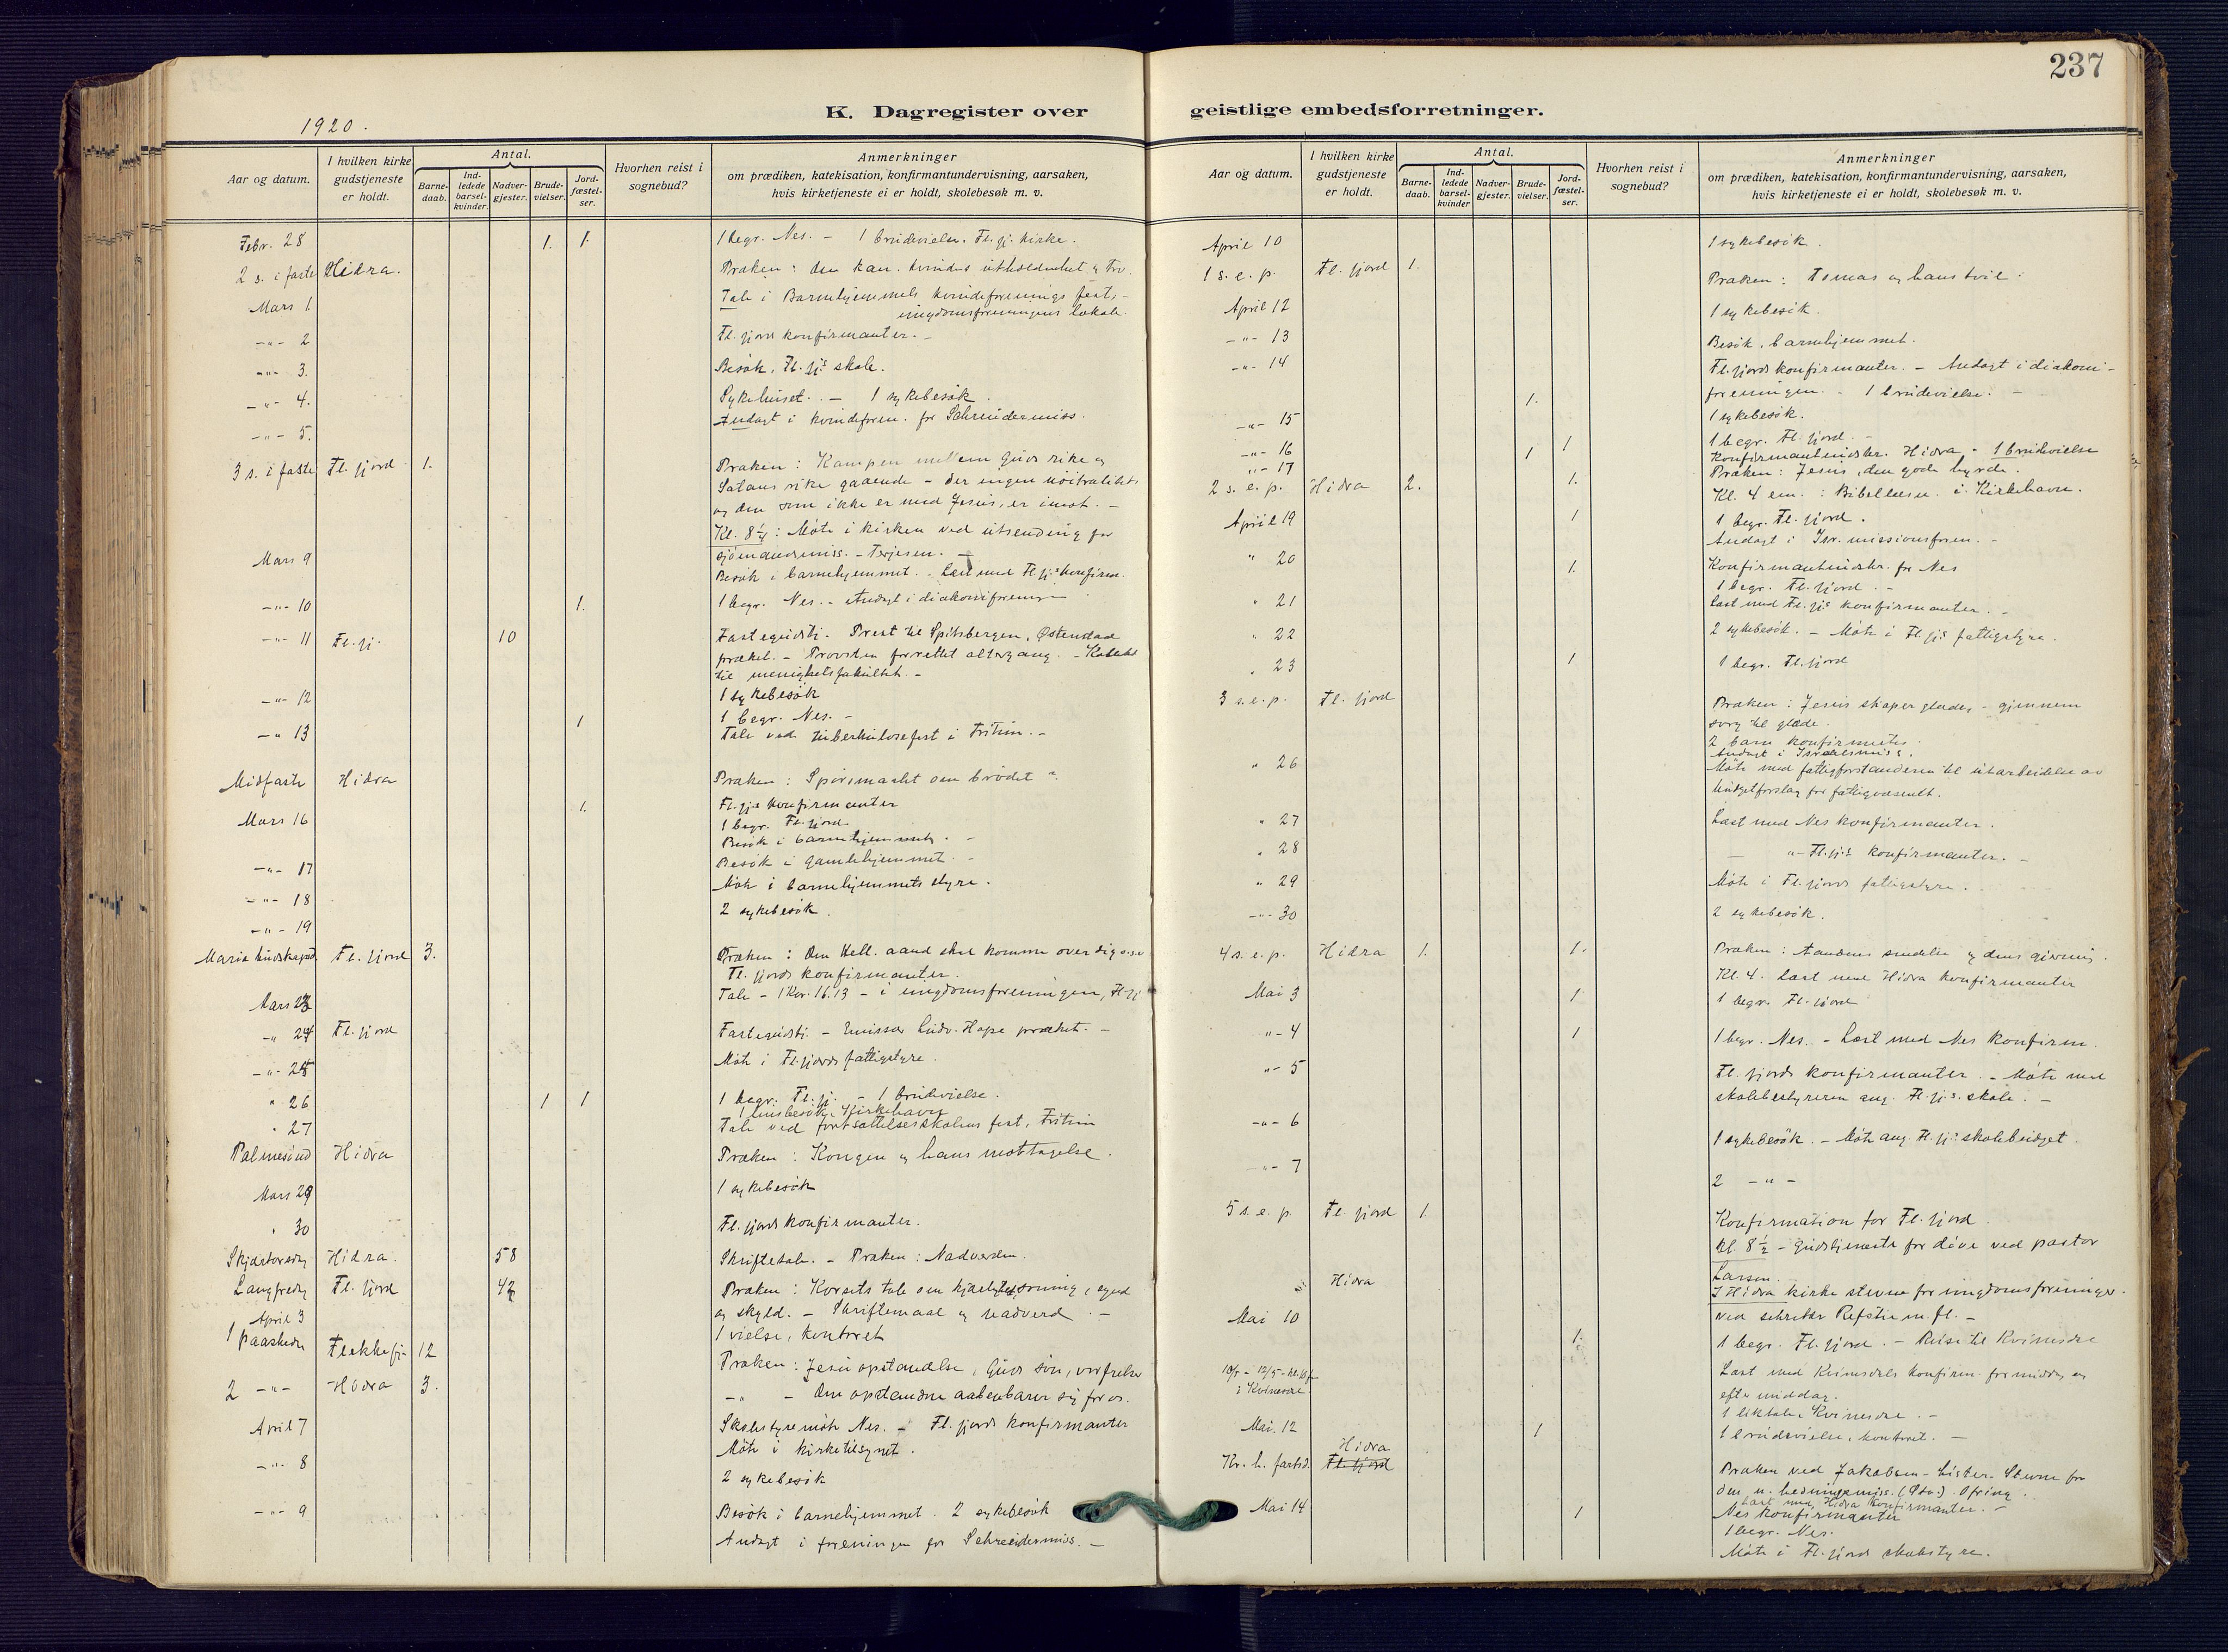 237
K. Dagregister over geistlige embedsforretninger.
1920.
Aar og datum.
I hvilken kirke gudstjeneste er holdt.
Antal.
Barnedaab.
Indledede barselkvinder.
Nadvergjester.
Brudevielser.
Jordfæstelser.
Hvorhen reist i sognebud?
Anmerkninger
om prædiken, katekisation, konfirmantundervisning, aarsaken,
hvis kirketjeneste ei er holdt, skolebesøk m. v.
Febr. 28 1. 1. 1 begr. Nes. – 1 brudevielse. Fl. fj. kirke.
2 s. i faste Hidra. Præken: den kan. kvindes utholdenhet og tro.
Mars 1. Tale i Barnehjemmets kvindeforenings fest, –
ungdomsforeningens lokale.
-"- 2 Fl. fjord konfirmanter. –
-"- 3. Besøk, Fl. fj.s skole.
-"- 4. Sykehuset. – 1 sykebesøk
-"- 5. Andagt i kvindeforen. for Schreudermiss.
3 s. i faste Fl. fjord 1. Præken: Kampen mellem Guds rike og
Satans rike gaaende – der ingen nöitralitet
og den som ikke er med Jesus, er imot. –
Kl. 8 1/4: Möte i kirken ved utsending for
sjömandsmiss. – Terjesen. –
Mars 9 Besök i barnehjemmet. – Læst med Fl. fj.s konfirm.
-"- 10 1. 1 begr. Nes. – Andagt i diakoniforening
-"- 11 Fl. fj. 10 Fastegudstj. – Prest til Spitsbergen, Østenstad
præket. – Provsten forrettet altergang. – Kollekt
til menighetsfakultet. –
-"- 12 1 sykebesök
-"- 13 1 1 begr. Nes. –
Tale ved tuberkulosefest i Fritun. –
Midfaste Hidra Præken: Spörsmaalet om brödet
Mars 16 1. Fl. fj.s konfirmanter
1 begr. Fl. fjord.
Besök i barnehjemmet. –
-"- 17 Besök i gamlehjemmet. –
-"- 18 Möte i barnehjemmets styre.
-"- 19 2 sykebesök.
Mariæ budskapsd. Fl. fjord 3. Præken: Den Hell. aand skal komme over dig o.s.v.
Fl. fjords konfirmanter.
Mars 23 Tale – 1 Kor. 16.13 – i ungdomsforeningen, Fl. fj
-"- 24 Fl. fjord Fastegudstj. – Emissær Ludv. Hope præket. –
-"- 25 Möte i Fl. fjords fattigstyre.
" 26 1 1 1 begr. Fl. fj. – 1 brudevielse.
1 husbesök, Kirkehavn
" 27 Tale ved fortsættelsesskolens fest, Fritun
Palmesönd Hidra Præken: Kongen og hans mottagelse.
Mars 29 1 sykebesök
" 30 Fl. fjords konfirmanter.
Skjærtorsdag Hidra. 58 Skriftetale. – Præken: Nadverden.
Langfredag Fl. fjord 42 Præken: Korsets tale om kjærlighet, soning, synd
og skyld. – Skriftemaal og nadverd. –
April 3 1 vielse, kontoret
1 paaskedag Flekkefj. 12 Præken: Jesu opstandelse, Guds sön, vor frelser
2 -"- Hidra 3. -"- – Den opstandne aabenbarer sig for os.
April 7 Skolestyremöte Nes. – Fl. fjords konfirmanter
Möte i kirketilsynet.
-"- 8 2 sykebesök
-"- 9 Besök i barnehjemmet. 2 sykebesök
Andagt i foreningen for Schreudermiss. –
Aar og datum.
I hvilken kirke gudstjeneste er holdt.
Antal.
Barnedaab.
Indledede barselkvinder
Nadvergjester.
Brudevielser.
Jordfæstelser.
Hvorhen reist i sognebud?
Anmerkninger
om prædiken, katekisation, konfirmantundervisning, aarsaken,
hvis kirketjeneste ei er holdt, skolebesøk m. v.
April 10 1 sykebesök.
1 s. e. p. Fl. fjord 1. Præken: Tomas og hans tvil.
April 12 1 sykebesök.
-"- 13 Besök, barnehjemmet.
-"- 14 Fl. fjords konfirmanter. – Andagt i diakoni-
1. foreningen. – 1 brudevielse. –
-"- 15 1 sykebesök.
-"- 16 1 1 begr. Fl. fjord. –
-"- 17 1 Konfirmantundster. Hidra – 1 brudevielse
2 s. e. p. Hidra 2. 1. Præken: Jesus, den gode hyrde.
Kl. 4 em.: Bibellæsn. i Kirkehavn.
April 19 1 1 begr. Fl. fjord.
Andagt i Isr. missionsforen. –
" 20 1. Konfirmantundster. for Nes
1 begr. Fl. fjord. –
" 21 Læst med Fl. fj.s konfirmanter. –
" 22 2 sykebesök. – Möte i Fl. fj.s fattigstyre.
" 23 1 1 begr. Fl. fjord
3 s. e. p. Fl. fjord Præken: Jesus skaper glæde, – gjennem
sorg til glæde.
2 barn konfirmertes.
Andagt i Israelsmiss.
" 26 Möte med fattigforstanderen til utarbeidelse av
budgetforslag for fattigvæsenet.
" 27 Læst med Nes konfirmanter.
" 28 – "– Fl. fj.s konfirmanter. –
" 29 Möte i Fl. fjords fattigstyre.
-"- 30 2 sykebesök.
4 s. e. p. Hidra 1. 1. Præken: Aandens sendelse og dens gjerning.
Kl. 4. Læst med Hidra konfirmanter
Mai 3 1 1 begr. Fl. fjord
"- 4 1 1 begr. Nes. – Læst med Nes konfirm.
"- 5 Fl. fjords konfirmanter. – Möte med
skolebestyreren ang. Fl. fj.s. skole. –
-"- 6 1 sykebesök. – Möte ang. Fl. fj.s skolebudget.
-"- 7 2 – " –
5 s. e. p. Fl. fjord 1. Konfirmation for Fl. fjord
Kl. 8 1/2 – Gudstjeneste for döve ved pastor
Larsen.
Hidra I Hidra kirke stevne for ungdomsforeninger.
ved sekretær Refstie m. fl. –
Mai 10 1. 1 begr. Fl. fjord. – Reise til Kvinesdal
i Kvinesdal Læst med Kvinesdals konfirm. formiddag og
eftermiddag.
1 liktale, Kvinesdal. –
Mai. 12 1 1 brudevielse, kontoret. –
Kr. h. fartsd. Hidra Fl. fjord Præken ved Jakobsen – Lister. Stevne for
den n. hedningemiss. Ofring.
Læst med Hidra konfirmanter. –
Mai 14 1 Nes konfirmanter
1 begr. Nes.
Möte i Fl. fjords skolestyre.